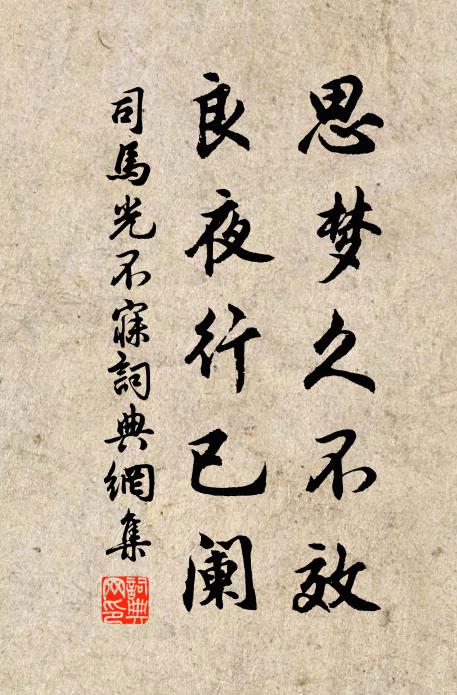 思梦久不效
良夜行已阑
司馬光不寐詞典網集
詞典
网印